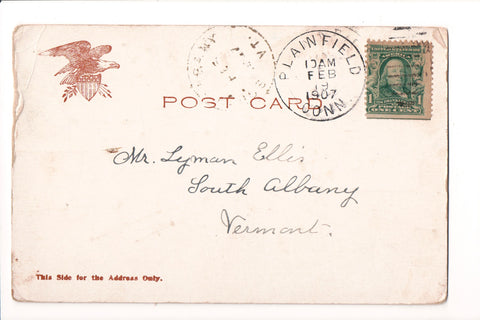 PLAINFIELD
10AM
FEB
19
1907
CONN.
POST CARD.
1
Mr. Lyman Ellis
South Albany
Vermont.
This Side for the Address Only.